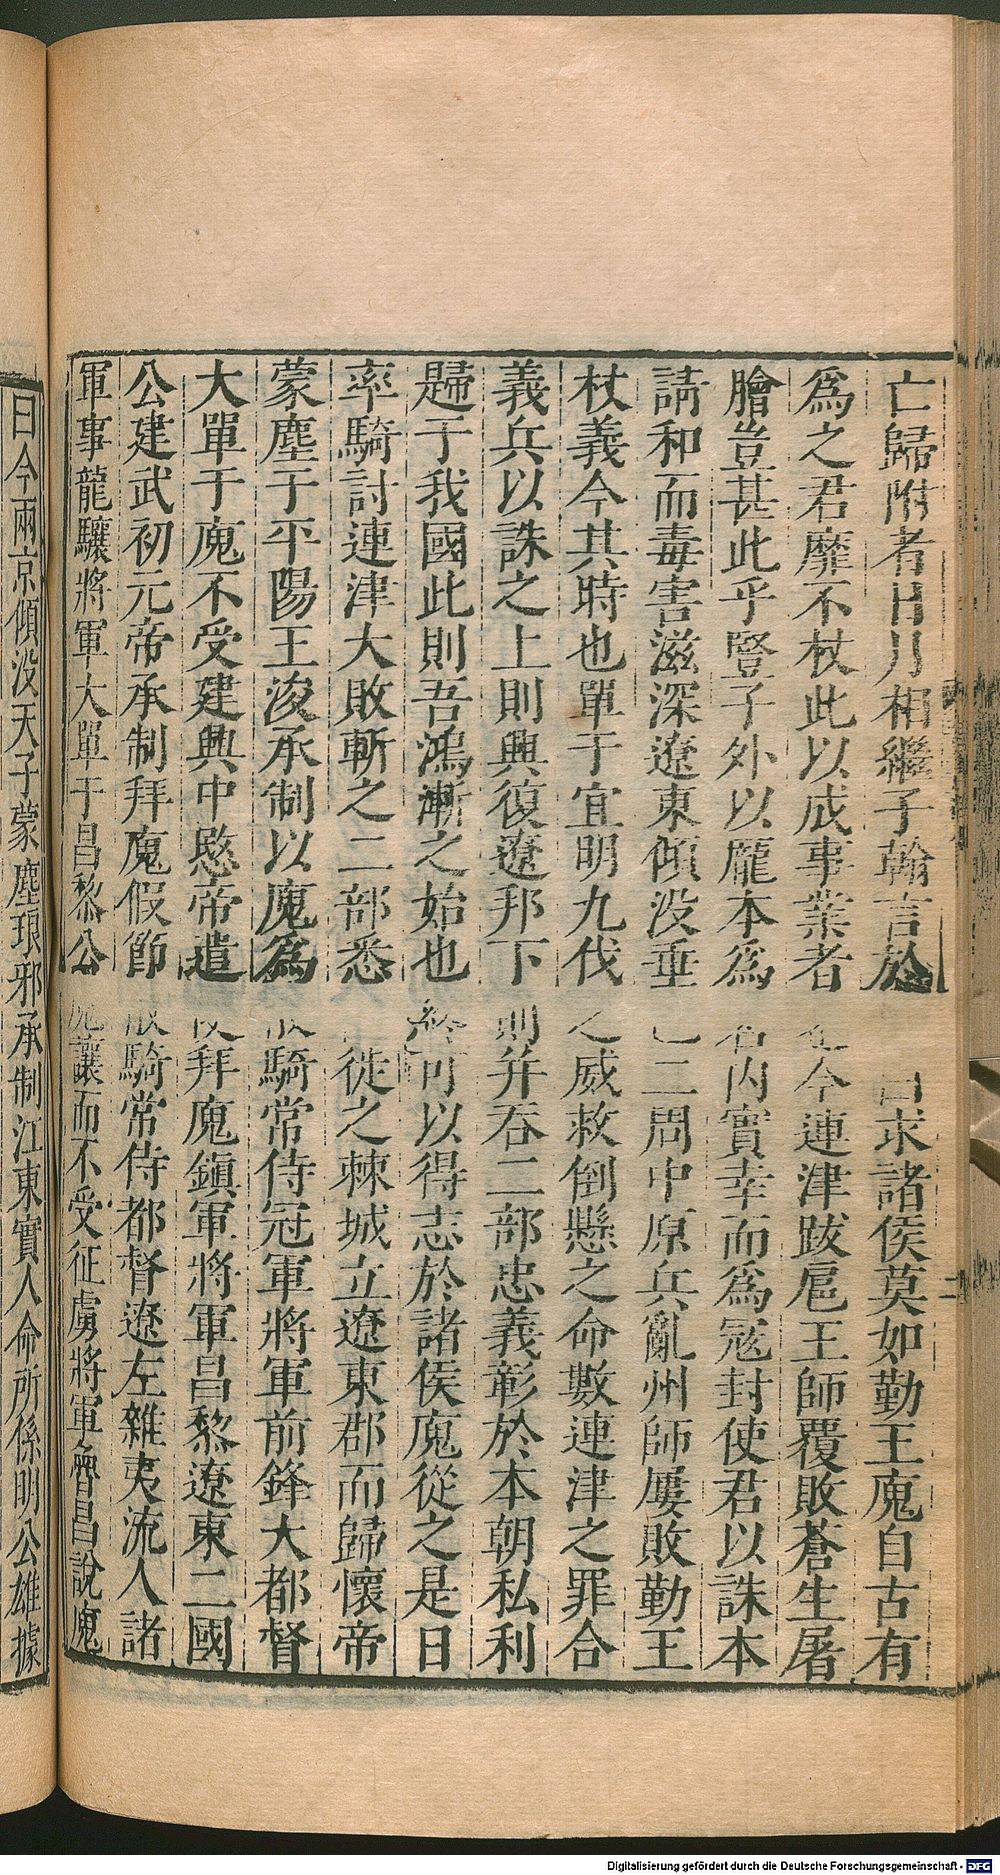 亡歸附者日月相繼子翰言於曰求諸侯莫如勤王廆自古有
爲之君靡不杖此以成事業者今連津跋扈王師覆敗蒼生屠
膾豈甚此乎豎子外以龐本爲名內實幸而爲寇封使君以誅本
請和而毒害滋深遼東傾没垂二周中原兵亂州師屢敗勤王
杖義今其時也單于宜明九伐之威救倒懸之命數連津之罪合
義兵以誅之上則興復遼邦下則并吞二部忠義彰於本朝私利
歸于我國此則吾鴻漸之始也終可以得志於諸侯廆從之是日
率騎討連津大敗斬之二部悉徙之棘城立遼東郡而歸懷帝
蒙塵于平陽王浚承制以廆爲散騎常侍冠軍將軍前鋒大都督
大單于廆不受建興中愍帝遣使拜廆鎮軍將軍昌黎遼東二國
公建武初元帝承制拜廆假節散騎常侍都督遼左雜夷流人諸
軍事龍驤將軍大單于昌黎公廆讓而不受征虜將軍魯昌說廆
曰今兩京傾没天子蒙塵琅邪承制江東實人命所係明公雄據
Digitalisierung gefördert durch die Deutsche Forschungsgemeinschaft - DFG